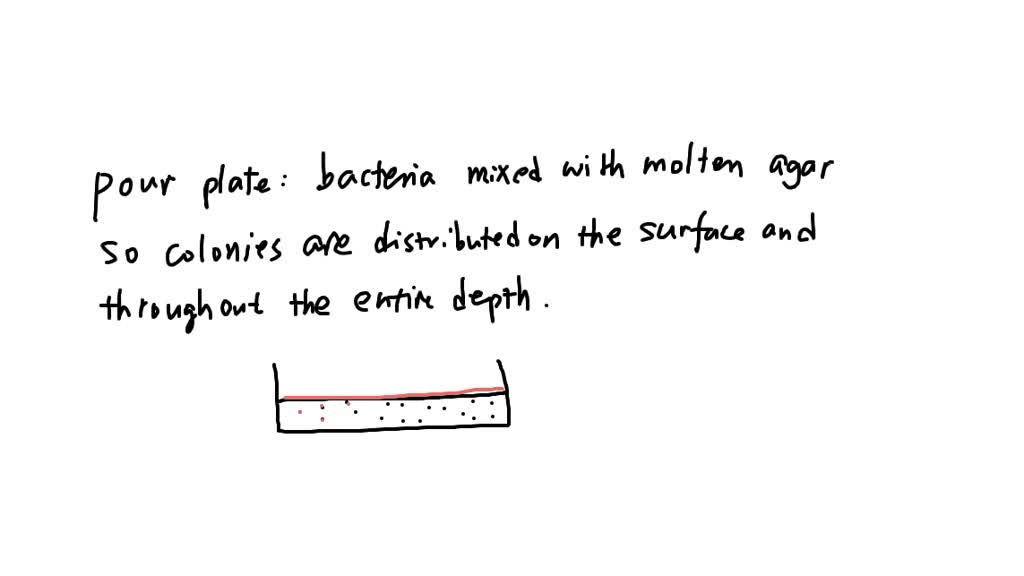 pour plate: bacteria mixed with molten agar
so colonies are distributed on the surface and
throughout the entire depth.